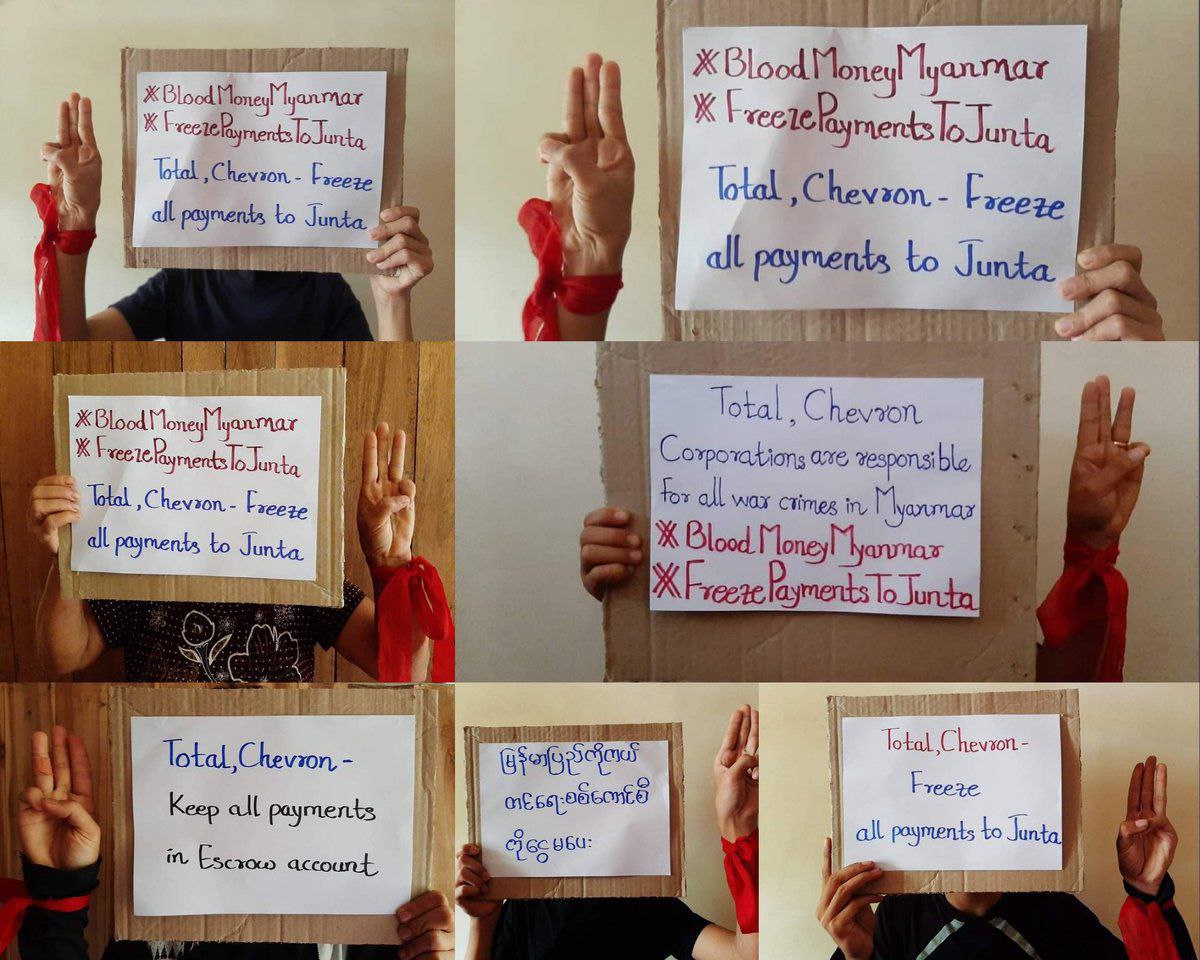 #BloodMoneyMyanmar
#FreezePaymentsToJunta
Total, Chevron - Freeze
all payments to Junta
#BloodMoneyMyanmar
#FreezePaymentsToJunta
Total, Chevron - Freeze
all payments to Junta
#BloodMoneyMyanmar
#FreezePaymentsToJunta
Total, Chevron - Freeze
all payments to Junta
Total, Chevron
Corporations are responsible
for all war crimes in Myanmar
#BloodMoneyMyanmar
#FreezePaymentsToJunta
Total, Chevron -
Keep all payments
in Escrow account
မြန်မာပြည်ကိုကယ်
တင်ရေးစစ်ကောင်စီ
ကိုငွေမပေး
Total, Chevron -
Freeze
all payments to Junta